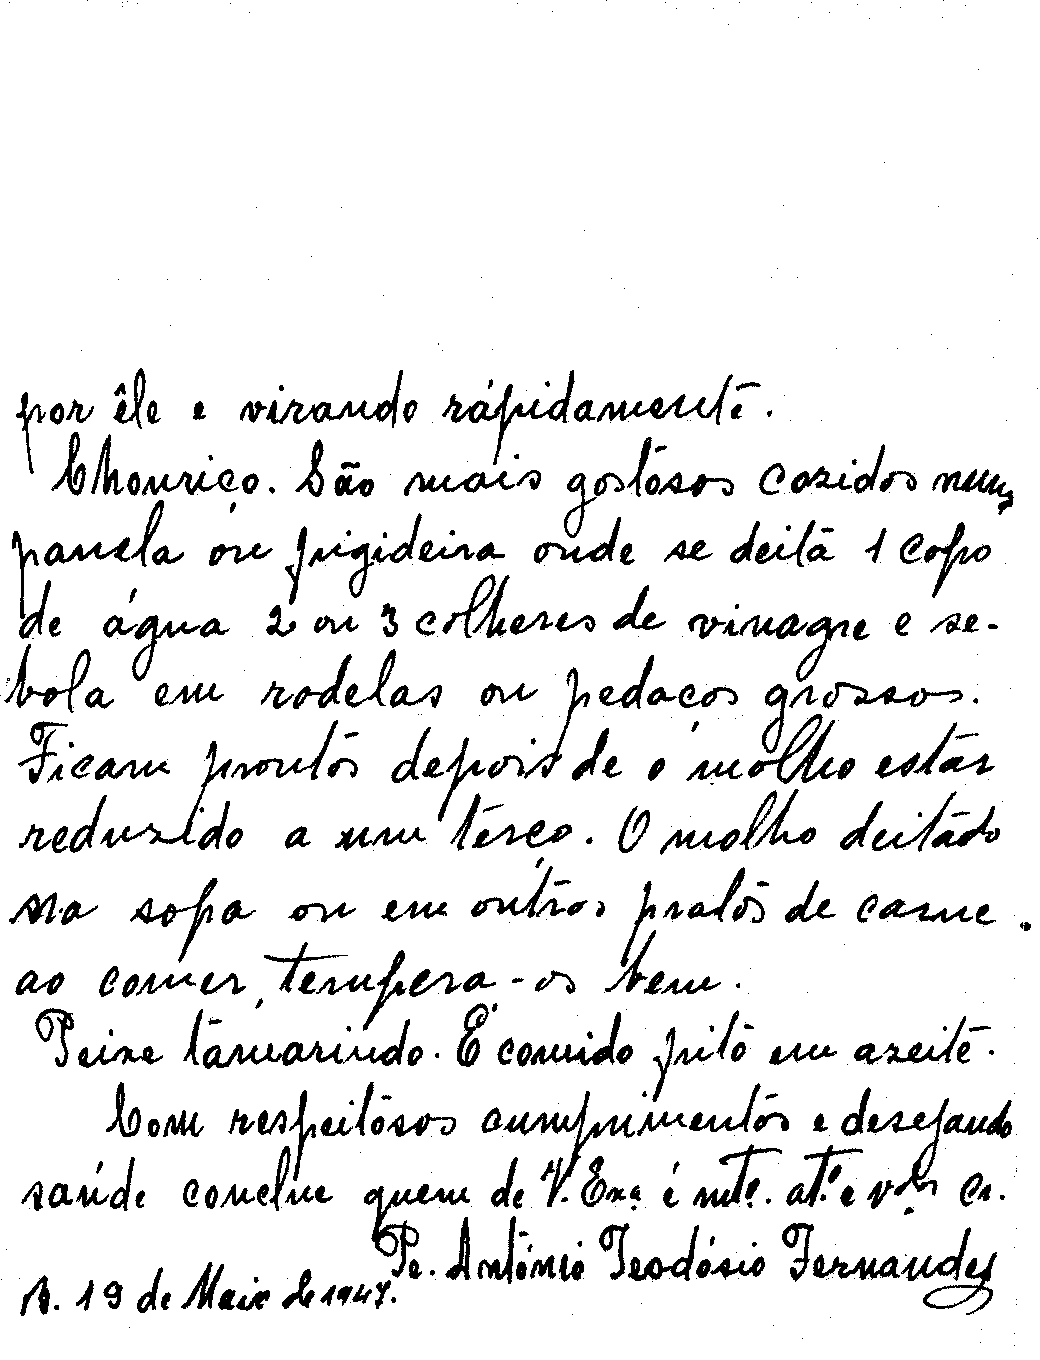 por êle e virando rápidamente.
Chouriço. São mais gostosos cozidos numa
panela ou frigideira onde se deita 1 copo
de água 2 ou 3 colheres de vinagre e se-
bola em rodelas ou pedaços grossos.
Ficam prontos depois de o molho estar
reduzido a um terço. O molho deitado
na sopa ou em outros pratos de carne.
ao comer, tempera-os bem.
Peixe tamarindo. É comido frito em azeite.
Com respeitosos cumprimentos e desejando
saúde conclue quem de V. Exa. é mto. ato. e
Pe. António Teodósio Fernandes
19 de Maio de 1947.